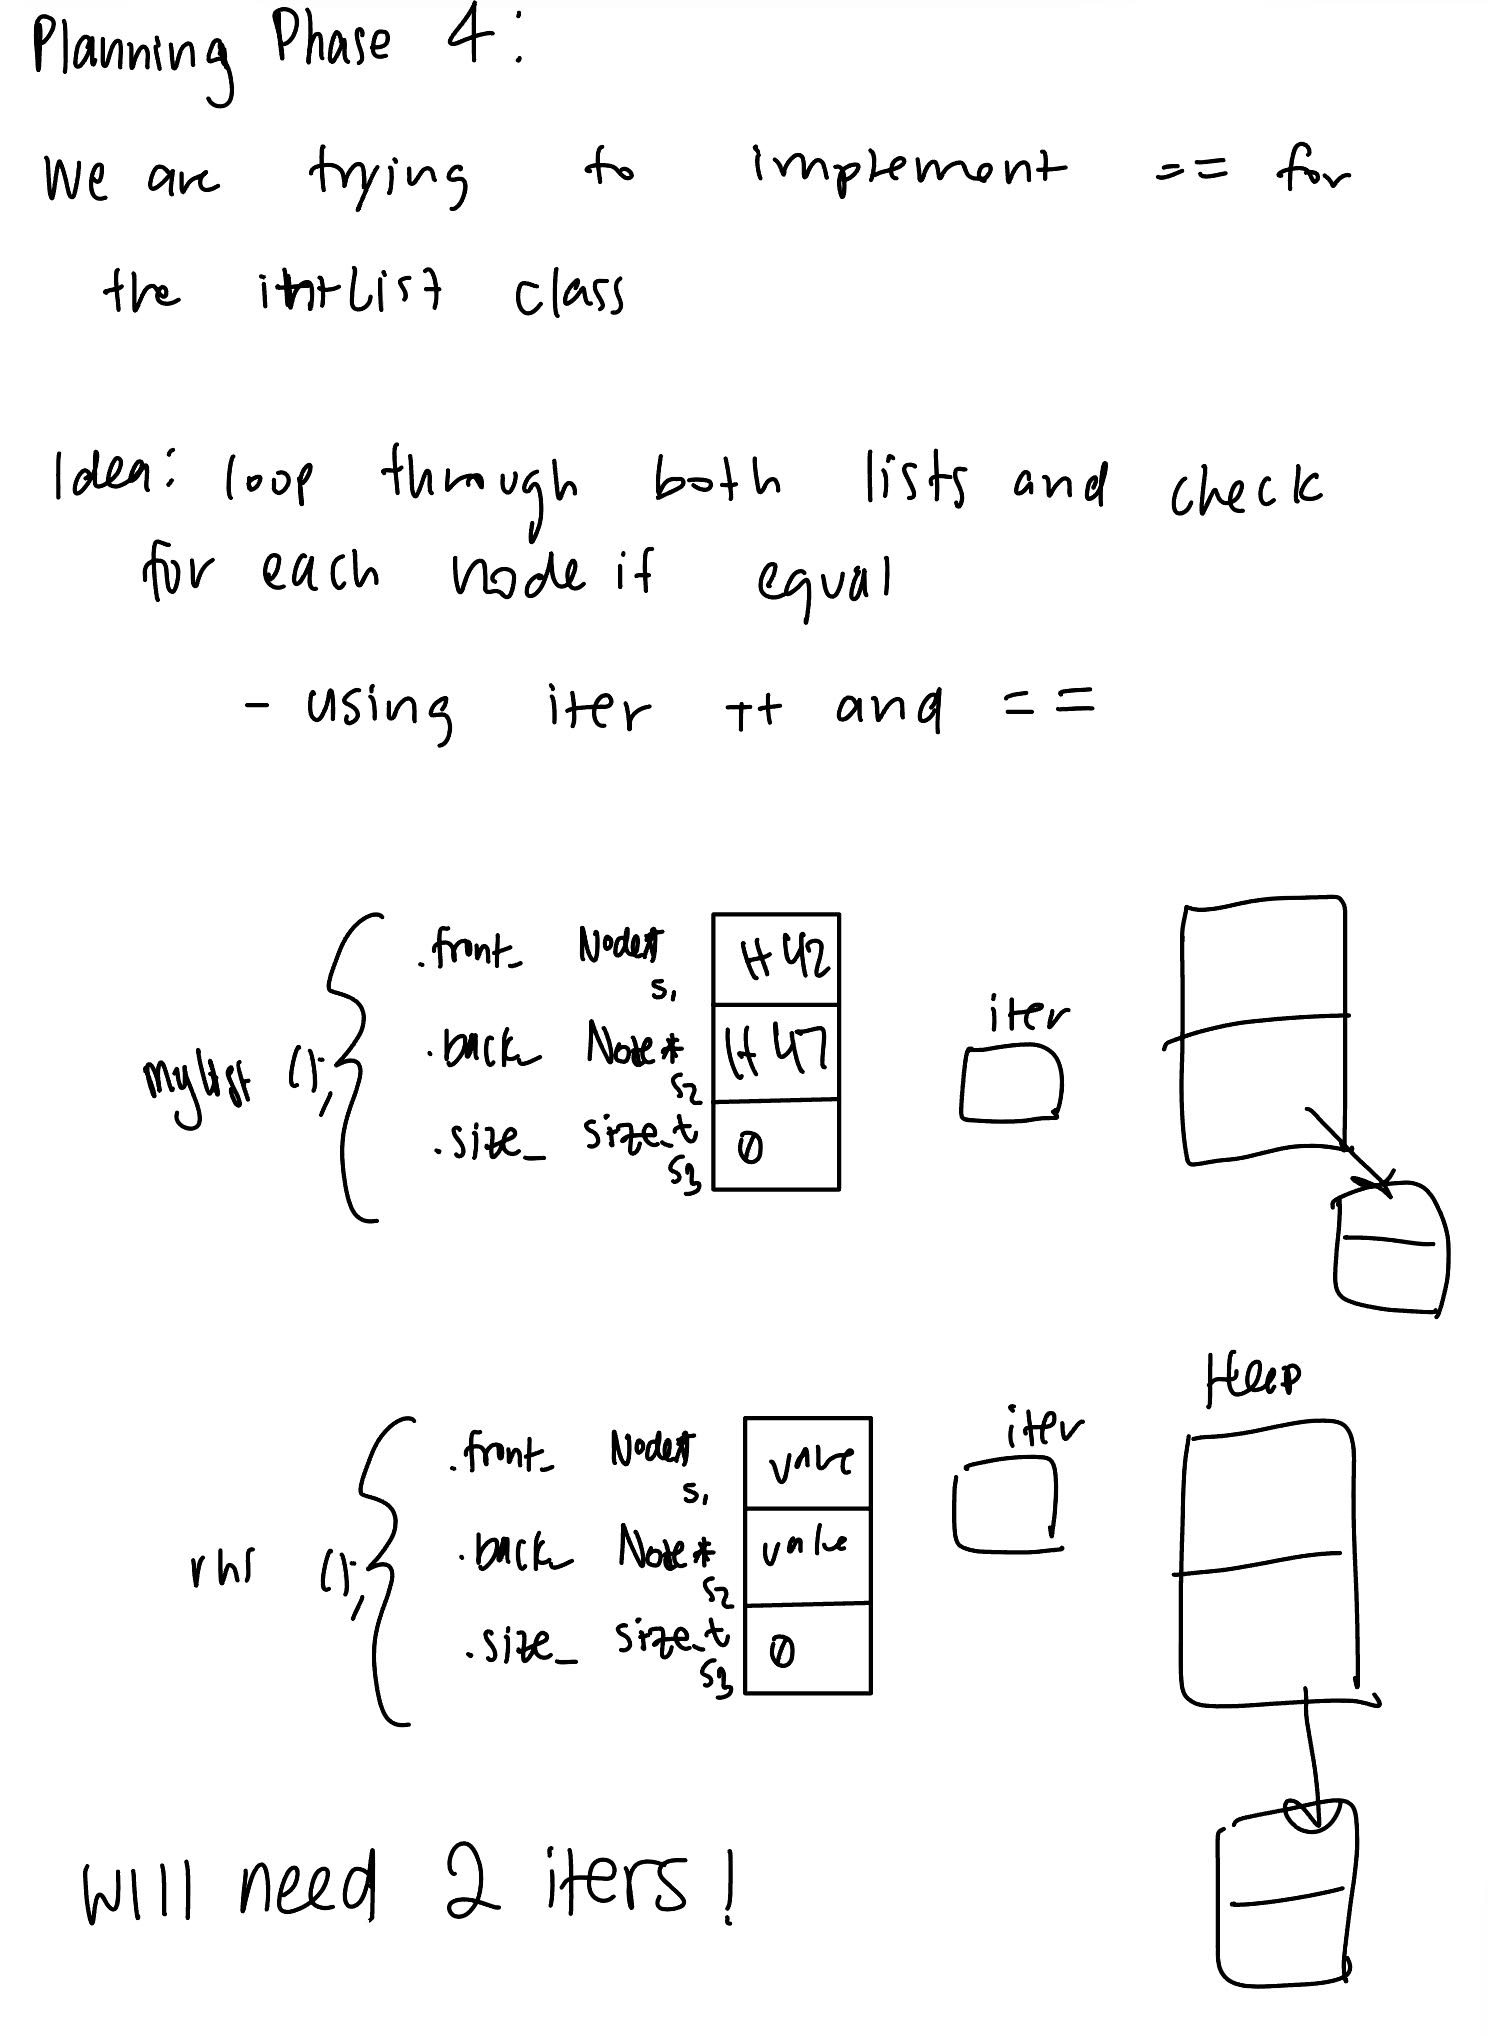 Planning Phase 4:
We are trying to implement == for
the intList class
Idea: loop through both lists and check
for each node if equal
- using iter ++ and ==
mylist ();
.front_ Node* H42
s1
.back_ Node* H47
s2
.size_ size_t 0
s3
iter
Heap
rhs ();
.front_ Node* value
s1
.back_ Node* value
s2
.size_ size_t 0
s3
iter
will need 2 iters!